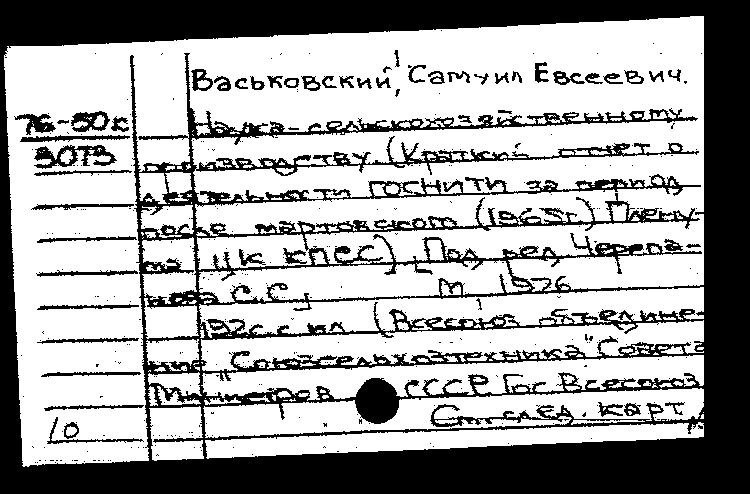 Васьковский, Самуил Евсеевич.
76-50к
3073
Наука - сельскохозяйственному
производству. (Краткий отчет о
деятельности ГОСНИТИ за период
после мартовского (1965г.) Плену-
ма ЦК КПСС). [Под ред. Черепа-
нова С.С.] М 1976
192с. с ил (Всесоюз объедине-
ние „Союзсельхозтехника" Совета
Министров СССР Гос Всесоюз
См. след. карт
10